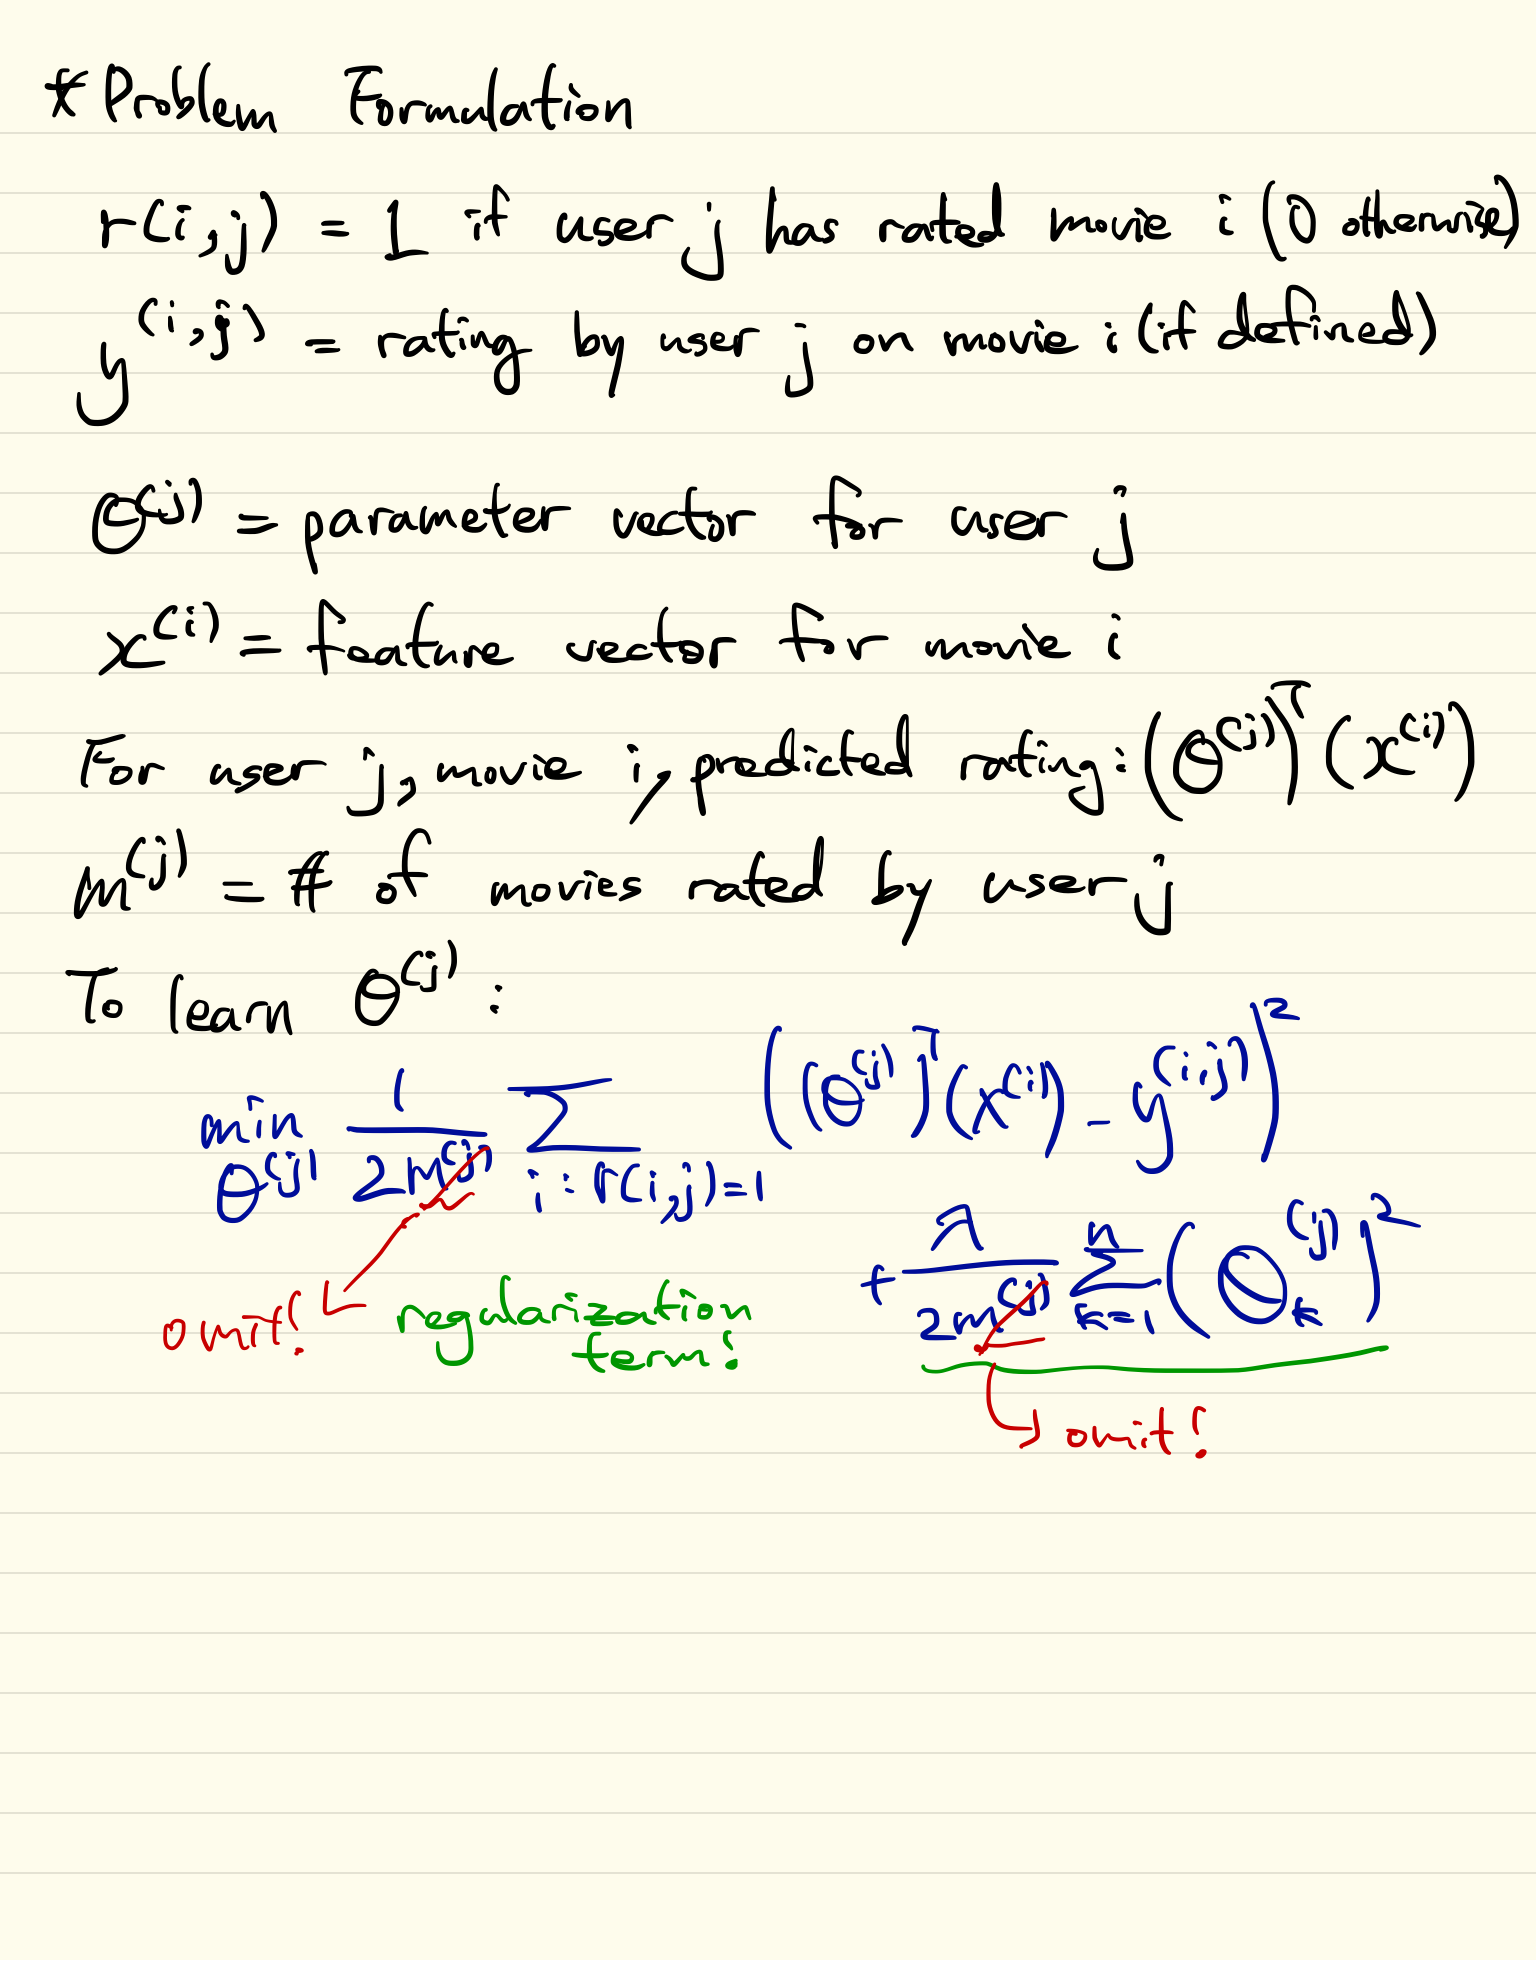 * Problem Formulation
r(i,j) = 1 if user j has rated movie i (0 otherwise)
y^(i,j) = rating by user j on movie i (if defined)
θ^(j) = parameter vector for user j
x^(i) = feature vector for movie i
For user j, movie i, predicted rating: (θ^(j))^T (x^(i))
m^(j) = # of movies rated by user j
To learn θ^(j) :
min θ^(j) 1/2m^(j) Σ i:r(i,j)=1 ((θ^(j))^T (x^(i)) - y^(i,j))^2
+ λ/2m^(j) Σ k=1 n (θ_k^(j))^2
omit! regularization
term!
omit!